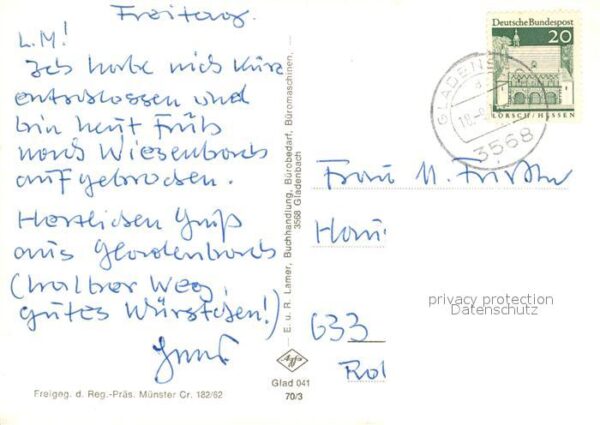 Freitag.
L.M!
Ich habe mich kurz
entschlossen und
bin heut Früh
nach Wiesenbach
aufgebrochen.
Herzlichen Gruß
aus Gladenbach
(halber Weg,
gutes Würstchen!)
Freigeg. d. Reg.-Präs. Münster Cr. 182/62
E. u. R. Lamer, Buchhandlung, Bürobedarf, Büromaschinen,
3568 Gladenbach
Agfa
Glad 041
70/3
Deutsche Bundespost
20
LORSCH/HESSEN
3568
Frau M.
633
privacy protection
Datenschutz